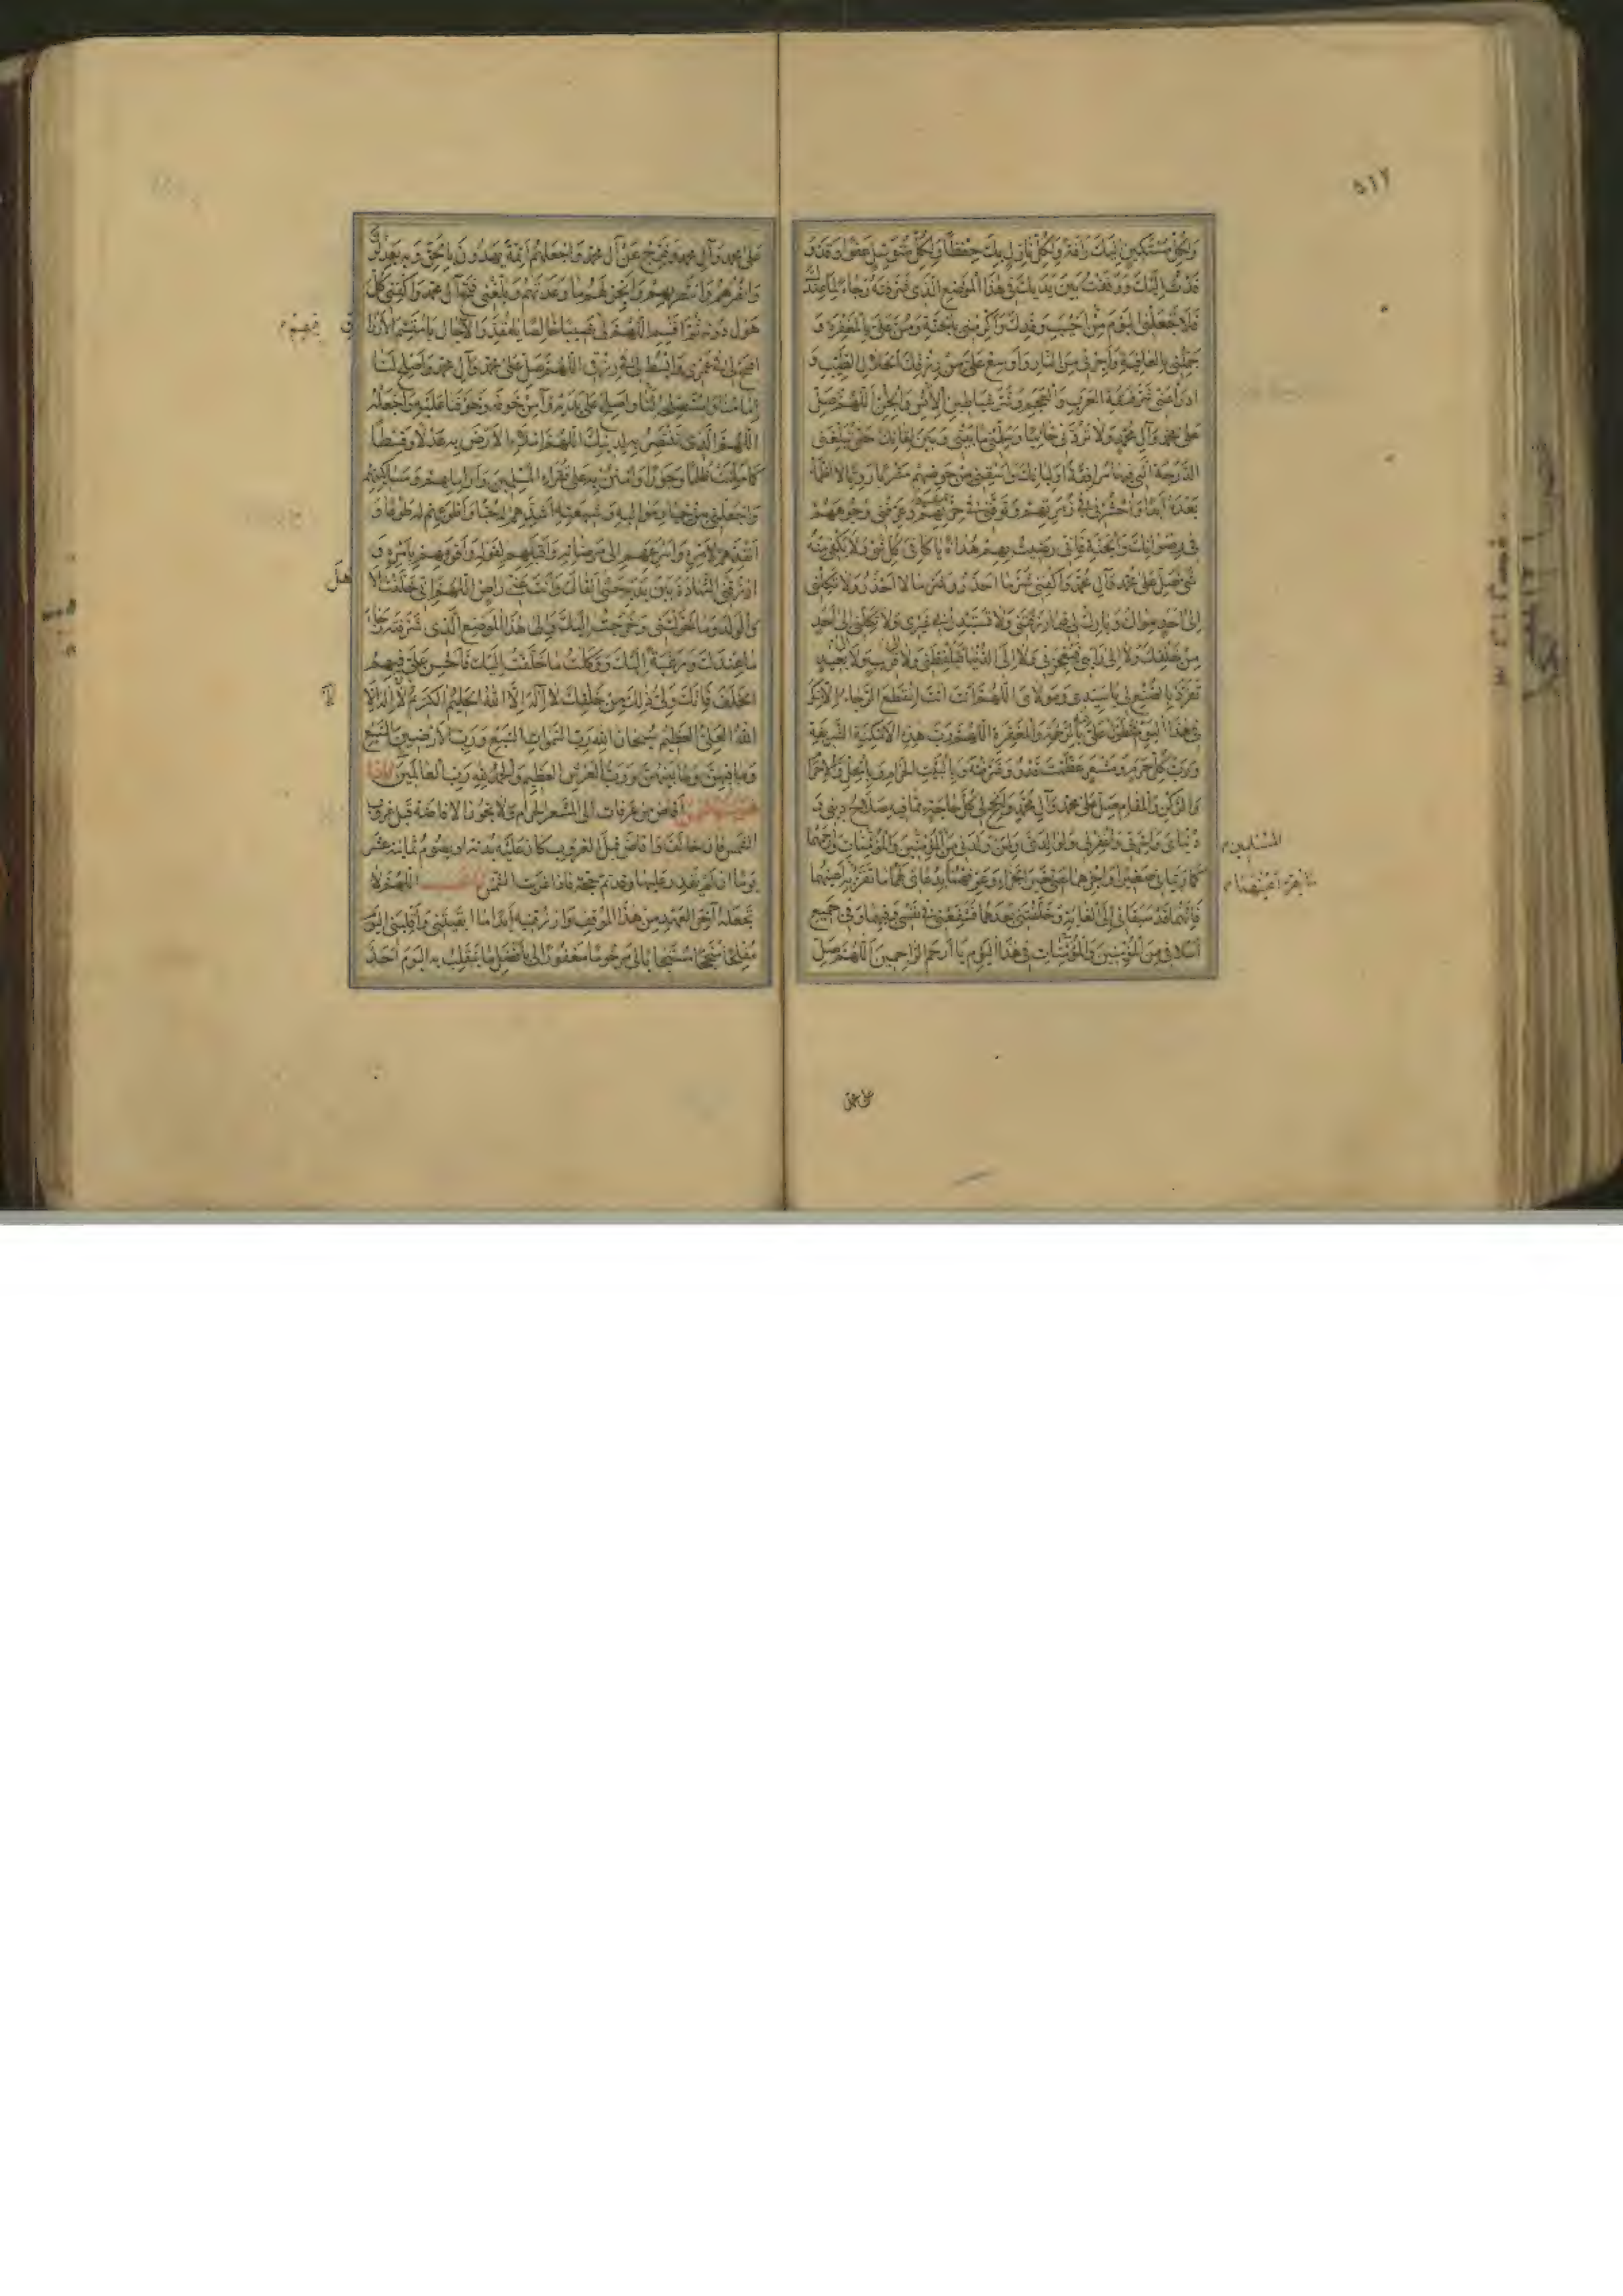 ٥١٢
وَلِكُلِّ مُسْتَكِينٍ إِلَيْكَ رَأْفَةً وَلِكُلِّ نَازِلٍ بِكَ حِفْظًا وَلِكُلِّ مُتَوَسِّلٍ عَفْوًا وَقَدْ وَ
فَدْتُ إِلَيْكَ وَوَقَفْتُ بَيْنَ يَدَيْكَ فِي هَذَا الْمَوْضِعِ الَّذِي شَرَّفْتَهُ رَجَاءً لِمَا عِنْدَكَ
فَلَا تَجْعَلْنِي الْيَوْمَ مِنْ أَخْيَبِ وَفْدِكَ وَأَكْرِمْنِي بِالْجَنَّةِ وَمُنَّ عَلَيَّ بِالْمَغْفِرَةِ وَ
جَمِّلْنِي بِالْعَافِيَةِ وَأَجِرْنِي مِنَ النَّارِ وَأَوْسِعْ عَلَيَّ مِنْ رِزْقِكَ الْحَلَالِ الطَّيِّبِ وَ
ادْرَأْ عَنِّي شَرَّ فَسَقَةِ الْعَرَبِ وَالْعَجَمِ وَشَرَّ شَيَاطِينِ الْإِنْسِ وَالْجِنِّ اللَّهُمَّ صَلِّ
عَلَى مُحَمَّدٍ وَآلِ مُحَمَّدٍ وَلَا تَرُدَّنِي خَائِبًا وَسَلِّمْنِي مَا بَيْنِي وَبَيْنَ لِقَائِكَ حَتَّى تُبَلِّغَنِي
الدَّرَجَةَ الَّتِي فِيهَا مُرَافَقَةُ أَوْلِيَائِكَ وَاسْقِنِي مِنْ حَوْضِهِمْ مَشْرَبًا رَوِيًّا لَا أَظْمَأُ
بَعْدَهُ أَبَدًا وَاحْشُرْنِي فِي زُمْرَتِهِمْ وَتَوَفَّنِي فِي حِزْبِهِمْ وَعَرِّفْنِي وُجُوهَهُمْ
فِي رِضْوَانِكَ وَالْجَنَّةِ فَإِنِّي رَضِيتُ بِهِمْ هُدَاةً يَا كَافِيَ كُلِّ شَيْءٍ وَلَا يَكْفِي مِنْهُ
شَيْءٌ صَلِّ عَلَى مُحَمَّدٍ وَآلِ مُحَمَّدٍ وَاكْفِنِي شَرَّ مَا أَحْذَرُ وَشَرَّ مَا لَا أَحْذَرُ وَلَا تَكِلْنِي
إِلَى أَحَدٍ سِوَاكَ وَبَارِكْ لِي فِيمَا رَزَقْتَنِي وَلَا تَسْتَبْدِلْ بِي غَيْرِي وَلَا تَكِلْنِي إِلَى أَحَدٍ
مِنْ خَلْقِكَ وَلَا إِلَى رَأْيِي فَيُعْجِزَنِي وَلَا إِلَى الدُّنْيَا فَتَلْفِظَنِي وَلَا إِلَى قَرِيبٍ وَلَا بَعِيدٍ
تَفَرَّدْ بِالصُّنْعِ لِي يَا سَيِّدِي وَمَوْلَايَ اللَّهُمَّ أَنْتَ أَنْتَ انْقَطَعَ الرَّجَاءُ إِلَّا مِنْكَ
فِي هَذَا الْيَوْمِ تَطَوَّلْ عَلَيَّ بِالرَّحْمَةِ وَالْمَغْفِرَةِ اللَّهُمَّ رَبَّ هَذِهِ الْأَمْكِنَةِ الشَّرِيفَةِ
وَرَبَّ كُلِّ حَرَمٍ وَمَشْعَرٍ عَظَّمْتَ قَدْرَهُ وَشَرَّفْتَهُ وَبِالْبَيْتِ الْحَرَامِ وَبِالْحِلِّ وَالْإِحْرَامِ
وَالرُّكْنِ وَالْمَقَامِ صَلِّ عَلَى مُحَمَّدٍ وَآلِ مُحَمَّدٍ وَأَنْجِحْ لِي كُلَّ حَاجَةٍ مِمَّا فِيهِ صَلَاحُ دِينِي وَ
دُنْيَايَ وَآخِرَتِي وَاغْفِرْ لِي وَلِوَالِدَيَّ وَلِمَنْ وَلَدَنِي مِنَ الْمُؤْمِنِينَ وَالْمُؤْمِنَاتِ وَارْحَمْهُمَا
المُسْلِمِينَ
كَمَا رَبَّيَانِي صَغِيرًا وَاجْزِهِمَا عَنِّي خَيْرَ الْجَزَاءِ وَعَرِّفْهُمَا بِدُعَائِي لَهُمَا مَا تُقِرُّ بِهِ أَعْيُنَهُمَا
فَإِنَّهُمَا قَدْ سَبَقَانِي إِلَى الْغَايَةِ وَخَلَّفْتَنِي بَعْدَهُمَا فَشَفِّعْنِي فِي نَفْسِي وَفِيهِمَا وَفِي جَمِيعِ
أَسْلَافِي مِنَ الْمُؤْمِنِينَ وَالْمُؤْمِنَاتِ فِي هَذَا الْيَوْمِ يَا أَرْحَمَ الرَّاحِمِينَ اللَّهُمَّ صَلِّ
على محمد
عَلَى مُحَمَّدٍ وَآلِ مُحَمَّدٍ وَفَرِّجْ عَنْ آلِ مُحَمَّدٍ وَاجْعَلْهُمْ أَئِمَّةً يَهْدُونَ بِالْحَقِّ وَبِهِ يَعْدِلُونَ
وَانْصُرْهُمْ وَانْتَصِرْ بِهِمْ وَأَنْجِزْ لَهُمْ مَا وَعَدْتَهُمْ وَبَلِّغْنِي فَتْحَ آلِ مُحَمَّدٍ وَاكْفِنِي كُلَّ
هَوْلٍ دُونَهُ ثُمَّ اقْسِمِ اللَّهُمَّ لِي نَصِيبًا خَالِصًا يَا مُقَدِّرَ الْآجَالِ يَا مُقَسِّمَ الْأَرْزَاقِ
افْسَحْ لِي فِي عُمْرِي وَابْسُطْ لِي فِي رِزْقِي اللَّهُمَّ صَلِّ عَلَى مُحَمَّدٍ وَآلِ مُحَمَّدٍ وَأَصْلِحْ لَنَا
إِمَامَنَا وَاسْتَصْلِحْهُ وَأَصْلِحْ عَلَى يَدَيْهِ وَآمِنْ خَوْفَهُ وَخَوْفَنَا عَلَيْهِ وَاجْعَلْهُ
اللَّهُمَّ الَّذِي تَنْتَصِرُ بِهِ لِدِينِكَ اللَّهُمَّ امْلَأِ الْأَرْضَ بِهِ عَدْلًا وَقِسْطًا
كَمَا مُلِئَتْ ظُلْمًا وَجَوْرًا وَامْنُنْ بِهِ عَلَى فُقَرَاءِ الْمُسْلِمِينَ وَأَرَامِلِهِمْ وَمَسَاكِينِهِمْ
وَاجْعَلْنِي مِنْ خِيَارِ مَوَالِيهِ وَشِيعَتِهِ أَشَدِّهِمْ لَهُ حُبًّا وَأَطْوَعِهِمْ لَهُ طَوْعًا وَ
أَنْفَذِهِمْ لِأَمْرِهِ وَأَسْرَعِهِمْ إِلَى مَرْضَاتِهِ وَأَقْبَلِهِمْ لِقَوْلِهِ وَأَقْوَمِهِمْ بِأَمْرِهِ وَ
ارْزُقْنِي الشَّهَادَةَ بَيْنَ يَدَيْهِ حَتَّى أَلْقَاكَ وَأَنْتَ عَنِّي رَاضٍ اللَّهُمَّ إِنِّي خَلَّفْتُ الْأَهْلَ
وَالْوَلَدَ وَمَا خَوَّلْتَنِي وَخَرَجْتُ إِلَيْكَ وَإِلَى هَذَا الْمَوْضِعِ الَّذِي شَرَّفْتَهُ رَجَاءَ
مَا عِنْدَكَ وَرَغْبَةً إِلَيْكَ وَوَكَلْتُ مَا خَلَّفْتُ إِلَيْكَ فَأَحْسِنْ عَلَيَّ فِيهِمُ
الْخَلَفَ فَإِنَّكَ وَلِيُّ ذَلِكَ مِنْ خَلْقِكَ لَا إِلَهَ إِلَّا اللَّهُ الْحَلِيمُ الْكَرِيمُ لَا إِلَهَ إِلَّا
اللَّهُ الْعَلِيُّ الْعَظِيمُ سُبْحَانَ اللَّهِ رَبِّ السَّمَوَاتِ السَّبْعِ وَرَبِّ الْأَرَضِينَ السَّبْعِ
وَمَا فِيهِنَّ وَمَا بَيْنَهُنَّ وَرَبِّ الْعَرْشِ الْعَظِيمِ وَالْحَمْدُ لِلَّهِ رَبِّ الْعَالَمِينَ فَإِذَا
غَرَبَتِ الشَّمْسُ أَفَاضَ مِنْ عَرَفَاتٍ إِلَى الْمَشْعَرِ الْحَرَامِ وَلَا يَجُوزُ الْإِفَاضَةُ قَبْلَ غُرُوبِ
الشَّمْسِ فَإِنْ خَالَفَ وَأَفَاضَ قَبْلَ الْغُرُوبِ كَانَ عَلَيْهِ بَدَنَةٌ أَوْ يَصُومُ ثَمَانِيَةَ عَشَرَ
يَوْمًا إِنْ لَمْ يَقْدِرْ عَلَيْهَا وَقَدْ تَمَّ حَجُّهُ فَإِذَا غَرَبَتِ الشَّمْسُ اللَّهُمَّ لَا
تَجْعَلْهُ آخِرَ الْعَهْدِ مِنْ هَذَا الْمَوْقِفِ وَارْزُقْنِيهِ أَبَدًا مَا أَبْقَيْتَنِي وَاقْلِبْنِي الْيَوْمَ
مُفْلِحًا مُنْجِحًا مُسْتَجَابًا لِي مَرْحُومًا مَغْفُورًا لِي بِأَفْضَلِ مَا يَنْقَلِبُ بِهِ الْيَوْمَ أَحَدٌ